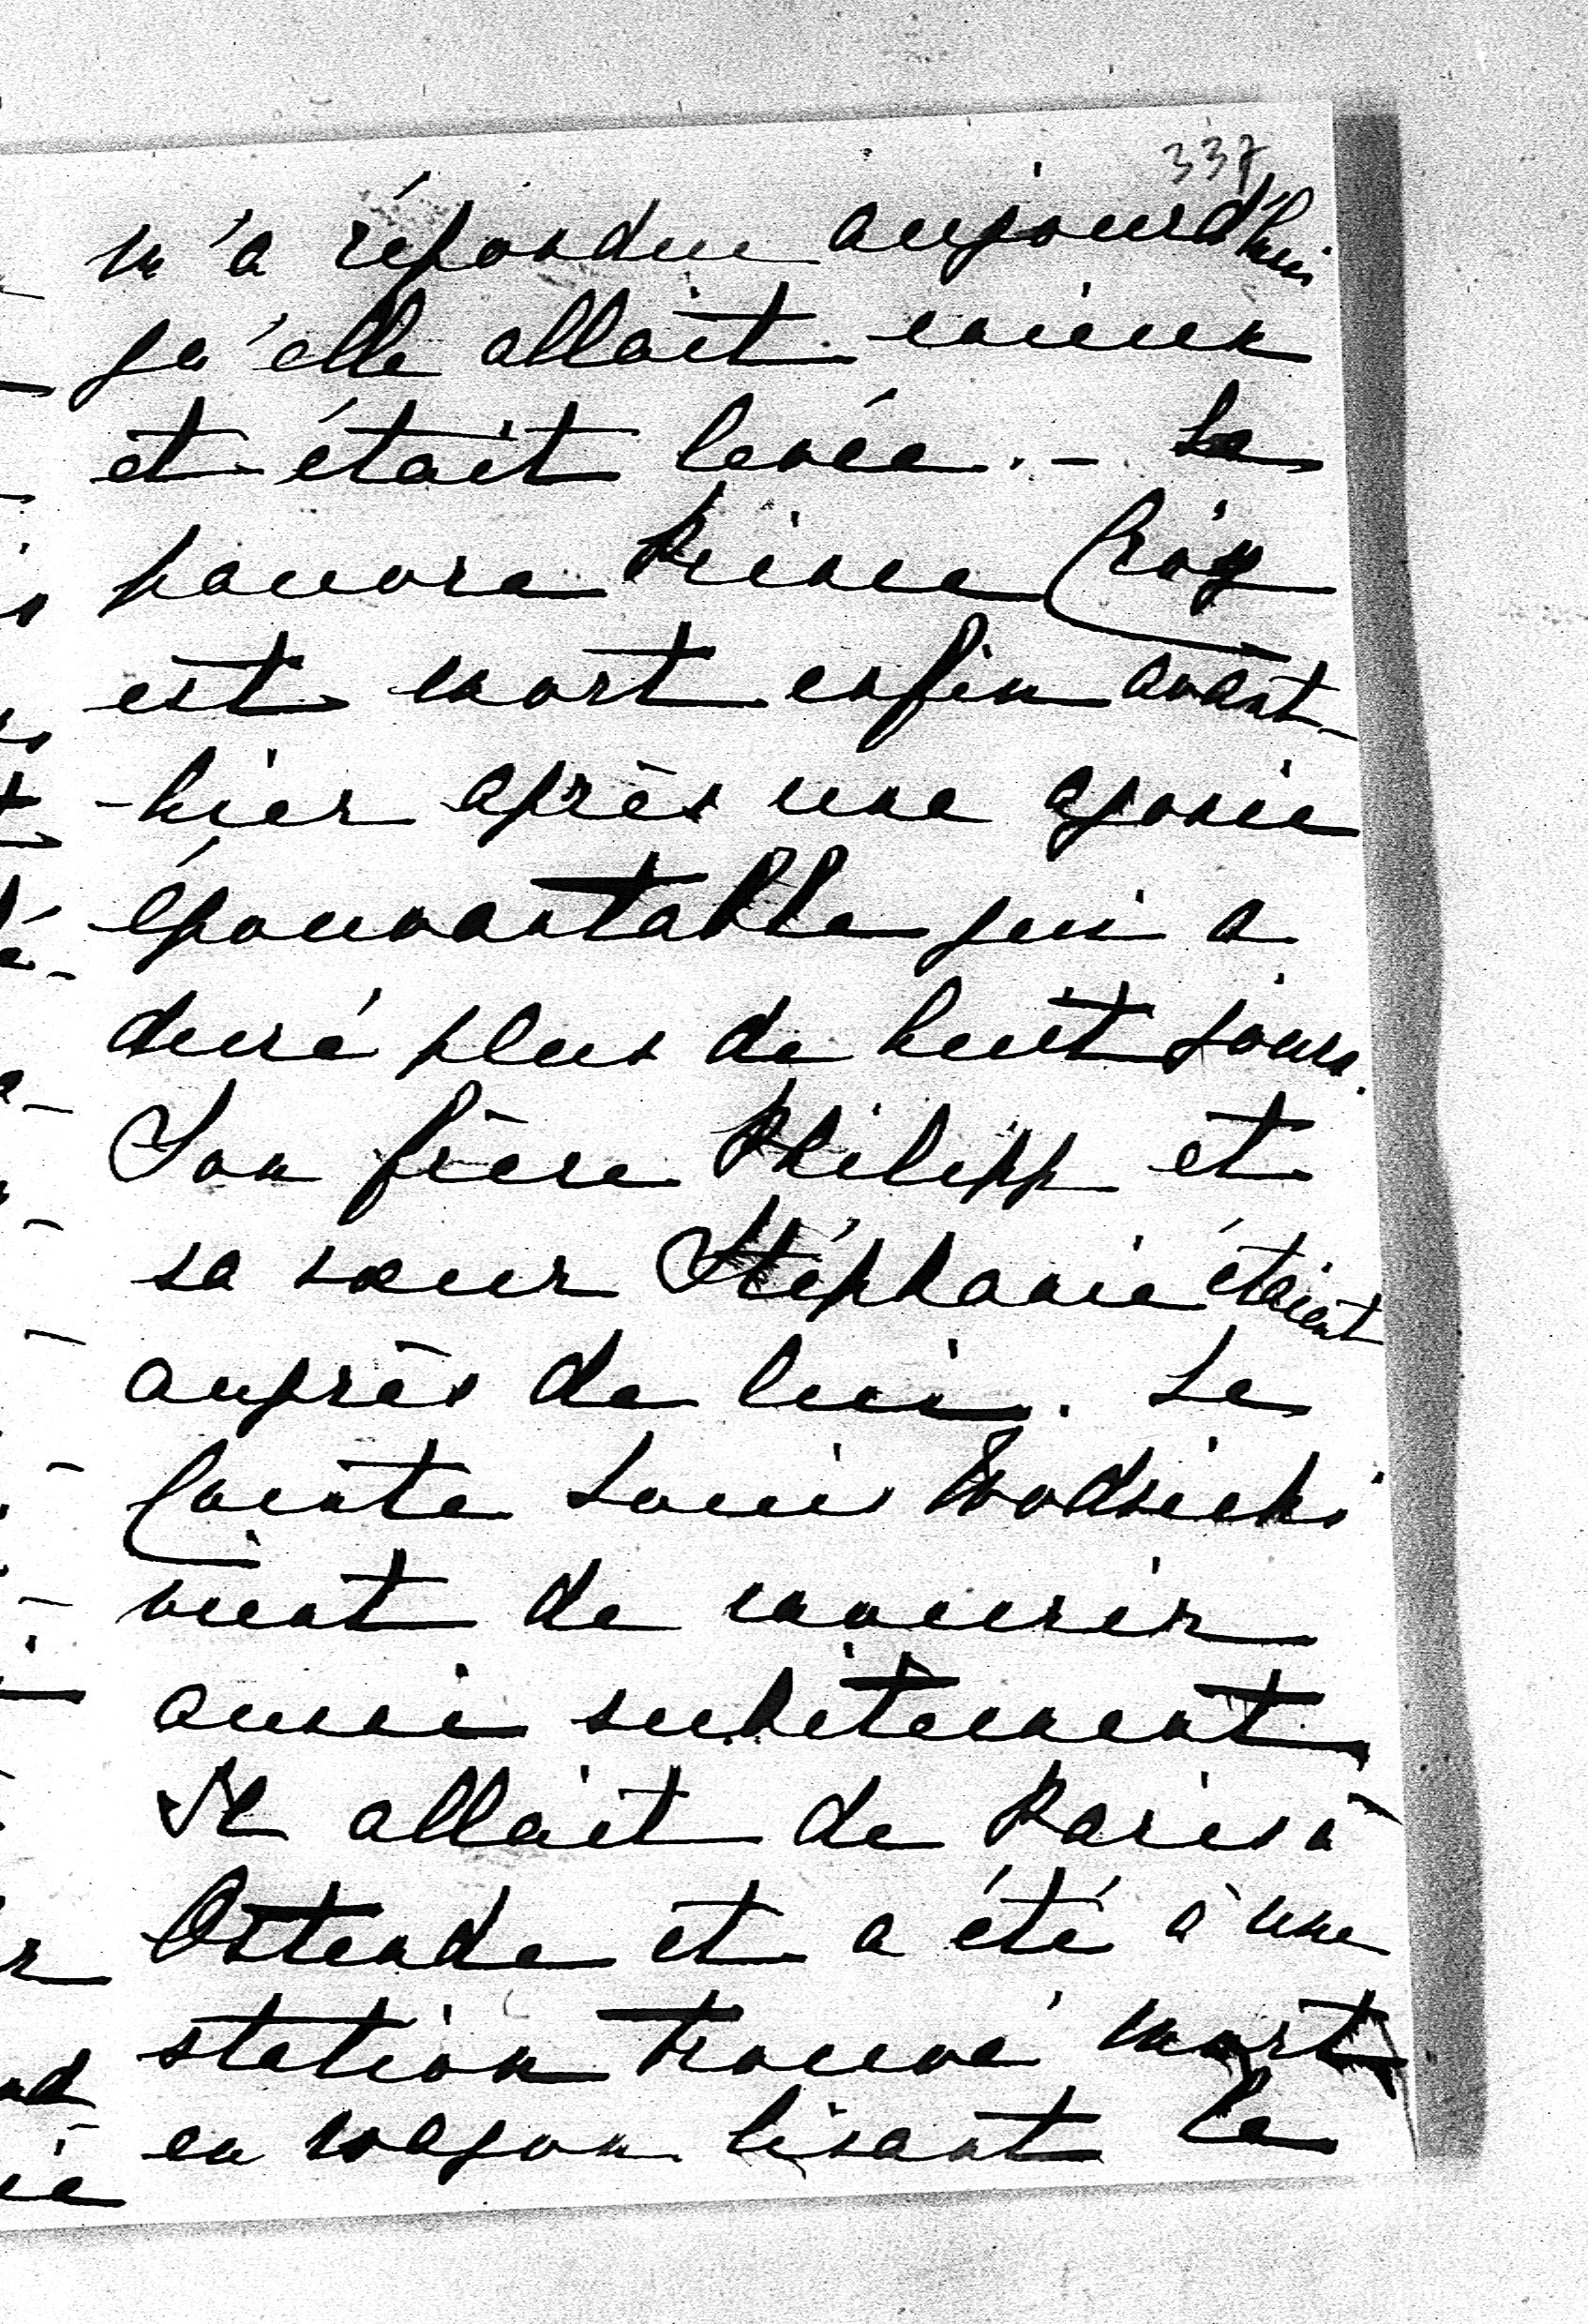 337
m'a répondu aujourd'hui
qu'elle allait mieux
et était levée. - Le
pauvre Prince Croÿ
est mort enfin avant-
-hier après une agonie
épouvantable qui a
duré plus de huit jours.
Son frère Philipp et
sa sœur Stéphanie étaient
auprès de lui. Le
Comte Louis Wodzicki
vient de mourir
aussi subitement
Il allait de Paris à
Ostende et a été à une
station trouvé mort
en wagon lisant le